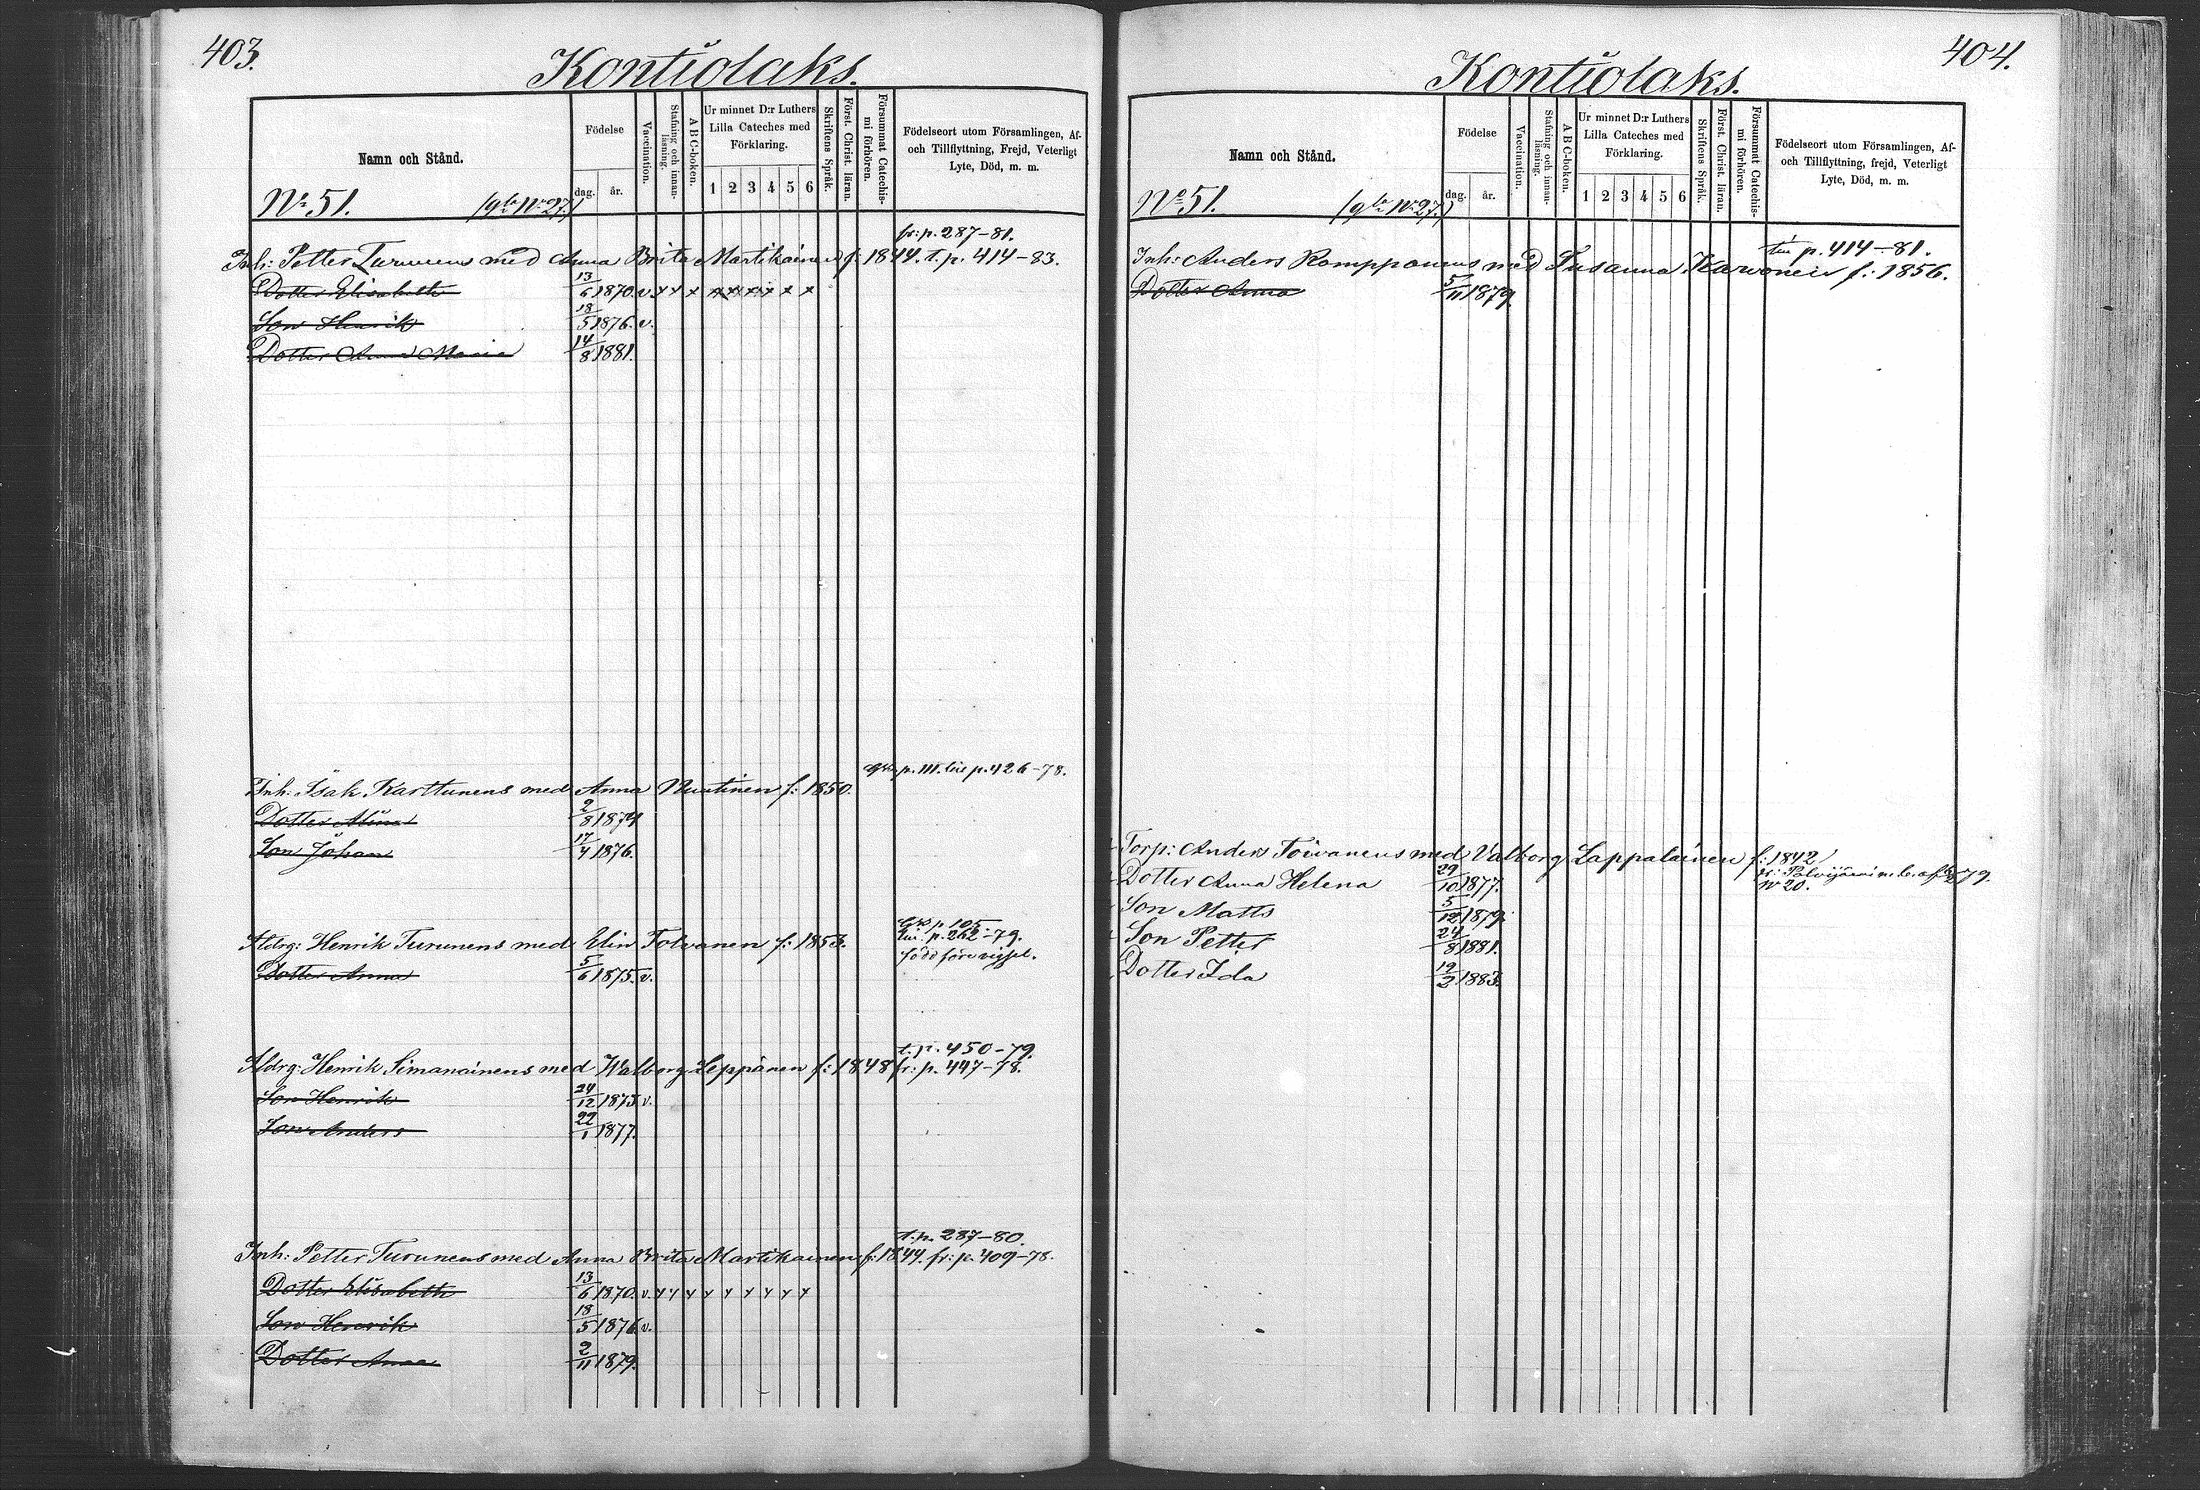 403.
Kontiolaks.
Namn och Stånd.
Födelse
dag. år.
Vaccination.
Stafning och innan-läsning.
A B C-boken.
Ur minnet D:r Luthers Lilla Cateches med Förklaring.
1 2 3 4 5 6
Skriftens Språk.
Först. Christ. läran.
Försummat Catechismi förhören.
Födelseort utom Församlingen, Af- och Tillflyttning, Frejd, Veterligt Lyte, Död, m. m.
No 51. (gla No 27.)
fr: p. 287-81.
Inh: Petter Turunens med Anna Brita Martikainen f: 1844. t. p. 414-83.
Dotter Elisabeth 13/6 1870. v. x x x x x x x x x
Son Henrik 18/5 1876. v.
Dotter Anna Maria 14/8 1881.
p. 111. till p. 426-78.
Inh: Isak Karttunens med Anna Nuutinen f: 1850.
Dotter Alina 2/8 1874
Son Johan 17/4 1876.
p. 105.
till p. 262-79.
Aldrg: Henrik Turunens med Elin Tolvanen f: 1853.
Dotter Anna 5/6 1875. v.
född före vigsel.
t. p. 450-79.
Aldrg: Henrik Simanainens med Walborg Leppänen f: 1848 fr: p. 447-78.
Son Henrik 24/12 1873 v.
Son Anders 22/1 1877.
t. p. 287-80.
Inh: Petter Turunens med Anna Brita Martikainen f: 1844. fr: p. 409-78.
Dotter Elisabeth 13/6 1870. v. x x x x x x x x x
Son Henrik 18/5 1876 v.
Dotter Anna 2/11 1879.
404.
Kontiolaks.
Namn och Stånd.
Födelse
dag. år.
Vaccination.
Stafning och innan-läsning.
A B C-boken.
Ur minnet D:r Luthers Lilla Cateches med Förklaring.
1 2 3 4 5 6
Skriftens Språk.
Först. Christ. läran.
Försummat Catechismi förhören.
Födelseort utom Församlingen, Af- och Tillflyttning, frejd, Veterligt Lyte, Död, m. m.
No 51. (gla No 27.)
till p. 414-81.
Inh: Anders Romppanens med Susanna Karvonen f: 1856.
Dotter Anna 5/11 1879.
Torp: Anders Toivanens med Valborg Lappalainen f: 1842
Dotter Anna Helena 29/10 1877.
fr: Polvijärvi m. b. af 79.
No 20.
Son Matts 5/12 1879.
Son Petter 24/8 1881.
Dotter Ida 19/2 1883.